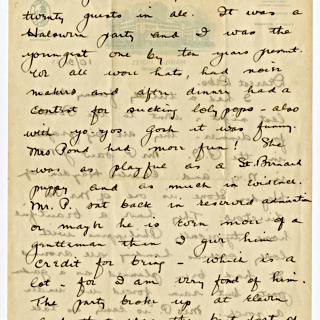 twenty guests in all. It was a
Halowe'en party and I was the
youngest one by ten years present.
We all wore hats, had noise
makers and after dinner had a
contest for sucking loly pops - also
with yo-yos. Gosh it was funny.
Mrs Pond had more fun! She
was as playful as a St. Bernard
puppy and as much in evidence.
Mr. P. sat back in reserved admiration
or maybe he is even more of a
gentleman than I give him
credit for being - which is a
lot - for I am very fond of him.
The party broke up at eleven